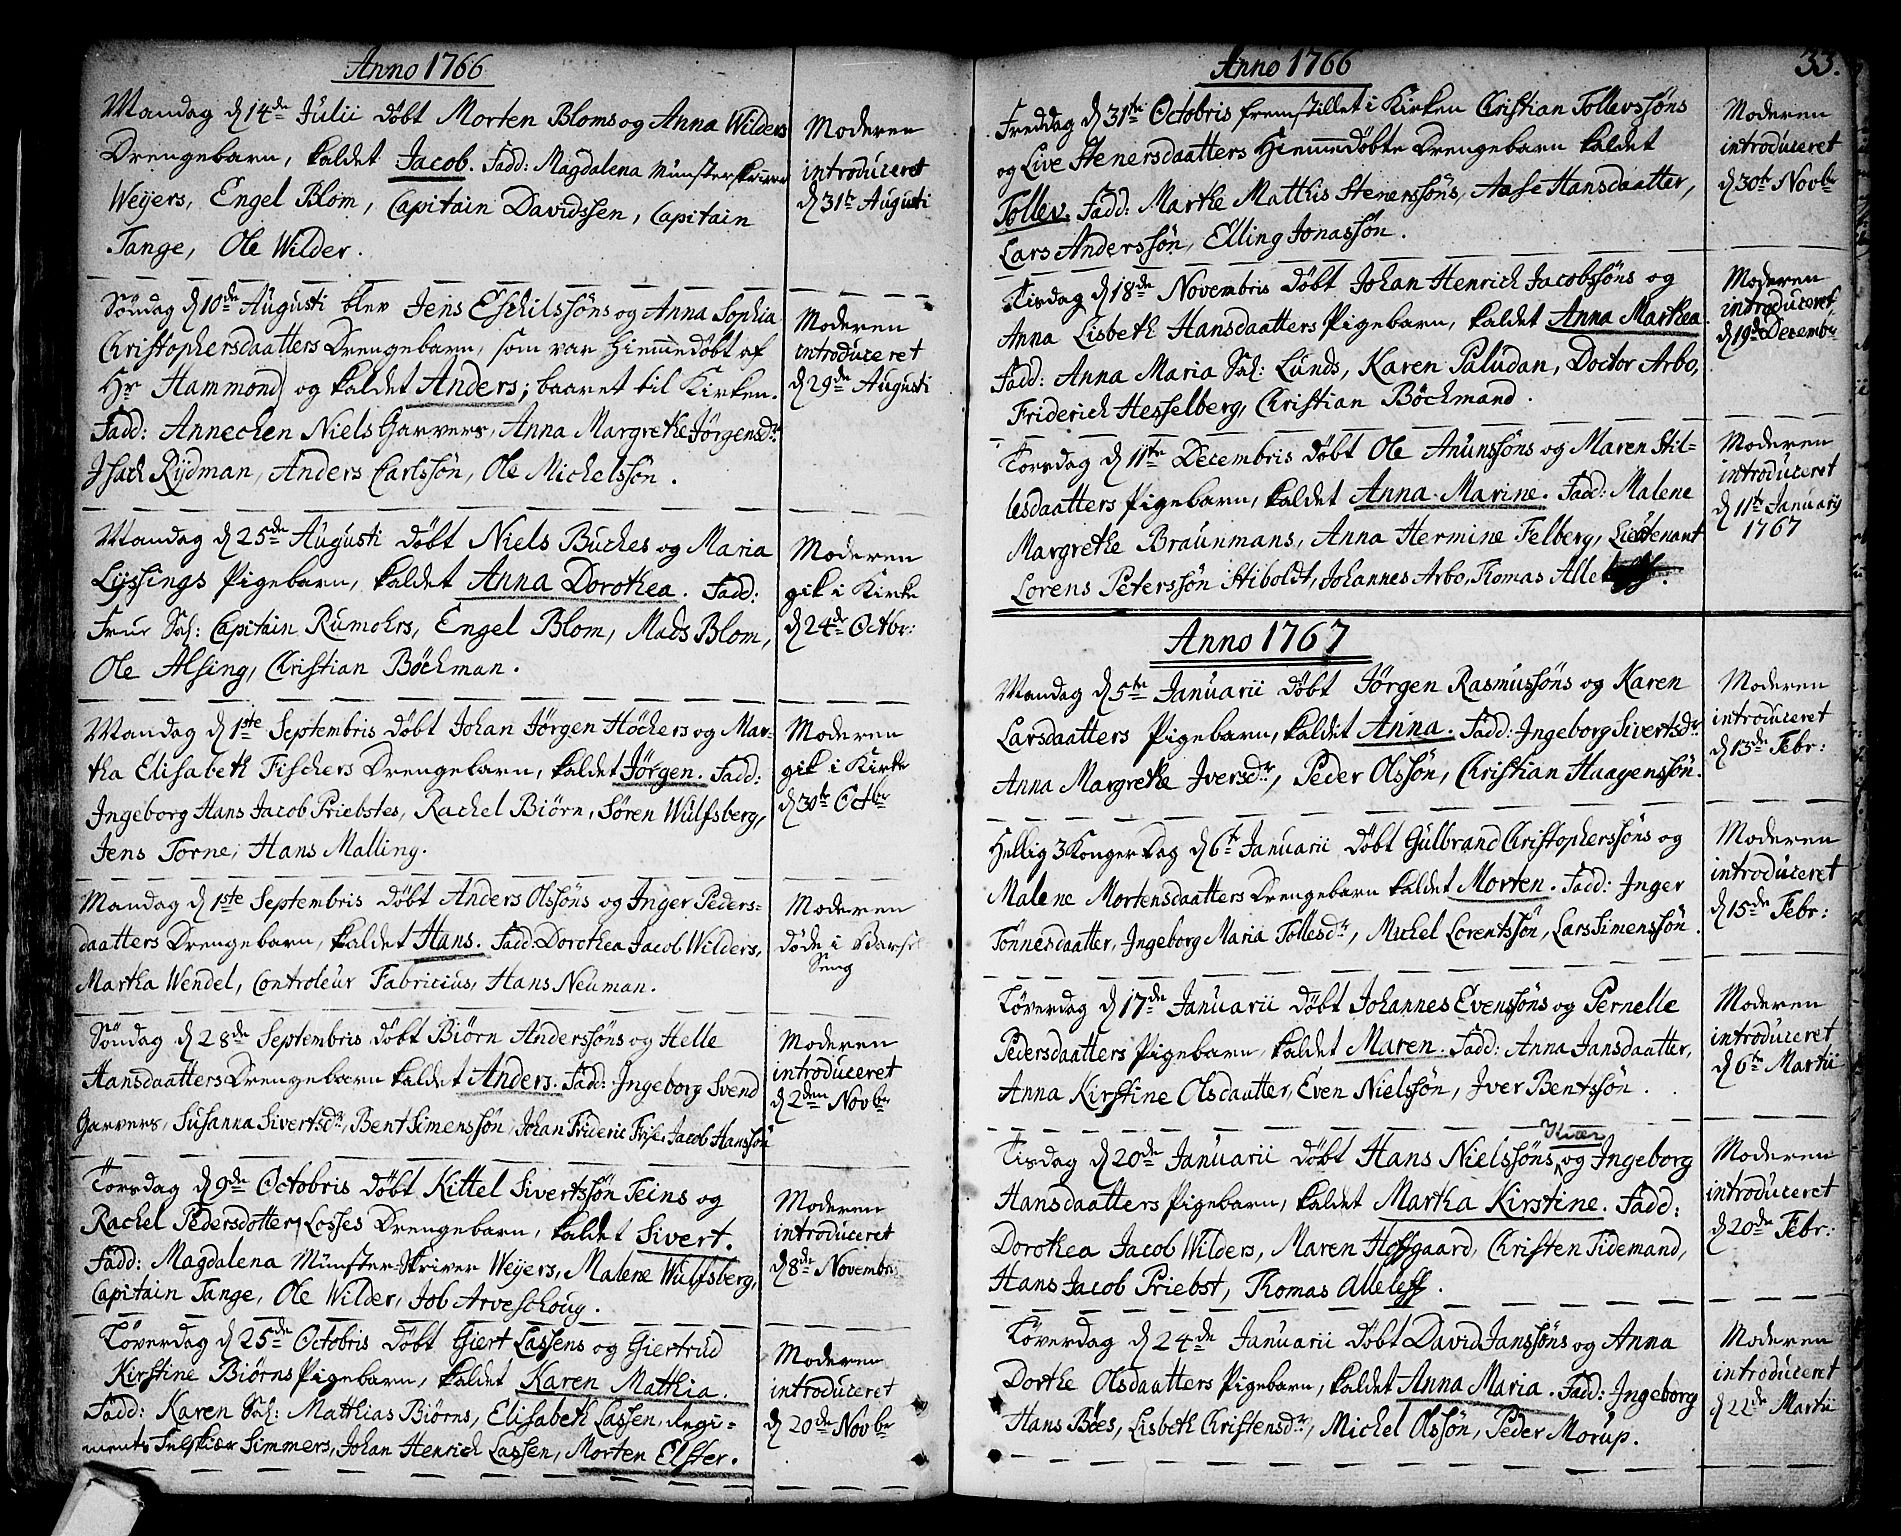 Anno 1766
Mandag d 14de Julii döbt Morten Bloms og Anna Wilders
Drengebarn, kaldet Jacob. Fadd: Magdalena Münsterskriver
Weyers, Engel Blom, Capitain Davidssen, Capitain
Tange, Ole Wilder.
Moderen
introduceret
d 31te Augusti
Söndag d 10de Augusti blev Jens Eschilssöns og Anna Sophia
Christophersdaatters Drengebarn, som var Hiemmedöbt af
Hr Hammond og kaldet Anders; baaret til Kirken.
Fadd: Annechen Niels Garvers, Anna Margrethe Jörgensdr
Isach Rydman, Anders Carlssön, Ole Michelssön.
Moderen
introduceret
d 29de Augusti
Mandag d 25de Augusti döbt Niels Buches og Maria
Lyssings Pigebarn, kaldet Anna Dorothea. Fadd:
Frue Sal: Capitain Rumohrs, Engel Blom, Mads Blom,
Ole Alsing, Christian Böchman.
Moderen
gik i Kirke
d 24de Octbr:
Mandag d 1ste Septembris döbt Johan Jörgen Höchers og Mar-
tha Elisabeth Fischers Drengebarn, kaldet Jörgen. Fadd:
Ingeborg Hans Jacob Priebstes, Rachel Biörn, Sören Wulfsberg,
Jens Torne, Hans Malling.
Moderen
gik i Kirke
d 30te Octbr
Mandag d 1ste Septembris döbt Anders Olssöns og Inger Peders-
daatters Drengebarn, kaldet Hans. Fadd: Dorothea Jacob Wilders,
Martha Wendel, Controleur Fabricius, Hans Neuman.
Moderen
döde i Barsel
Seng
Söndag d 28de Septembris döbt Biörn Anderssöns og Helle
Hansdaatters Drengebarn kaldet Anders. Fadd: Ingeborg Svend
Garvers, Susanna Sivertsdr, Bent Simenssön, Johan Frideric Frise, Jacob Hanssön
Moderen
introduceret
d 2den Novbr
Torsdag d 9de Octobris döbt Kittel Sivertssön Teins og
Rachel Pedersdotter Losses Drengebarn, kaldet Sivert.
Fadd: Magdalena Münster-Skriver Weyers, Malene Wulfsberg,
Capitain Tange, Ole Wilder, Job Arveschoug.
Moderen
introduceret
d 8de Novembris
Löverdag d 25de Octobris döbt Giert Lassens og Giertrud
Kirstine Biörns Pigebarn, kaldet Karen Mathia.
Fadd: Karen Sal: Mathias Biörns, Elisabeth Lassen, Regi-
ments Feltskiær Simmers, Johan Henrich Lassen, Morten Elster.
Moderen
introduceret
d 20de Novbr
Anno 1766
33.
Freddag d 31te Octobris fremstillet i Kirken Christian Tollevssöns
og Live Stenersdaatters Hiemmedöbte Drengebarn kaldet
Tollev. Fadd: Marthe Mathis Stenerssöns, Aase Hansdaatter,
Lars Anderssön, Elling Jonassön.
Moderen
introduceret
d 30te Novbr
Tirsdag d 18de Novembris döbt Johan Henrich Jacobssöns og
Anna Lisbeth Hansdaatters Pigebarn, kaldet Anna Marthea
Fadd: Anna Maria Sal: Lunds, Karen Paludan, Doctor Arbo,
Friderich Hesselberg, Christian Böchmand.
Moderen
introduceret
d 19de Decembr
Torsdag d 11te Decembris döbt Ole Anunssöns og Maren Stil-
lesdaatters Pigebarn, kaldet Anna Marine. Fadd: Malene
Margrethe Braunmans, Anna Hermine Felberg, Lieutenant
Lorens Peterssön Stiboldt, Johannes Arbo, Thomas Alle
Moderen
introduceret
d 11te January
1767
Anno 1767
Mandag d 5te Januarii döbt Jörgen Rasmussöns og Karen
Larsdaatters Pigebarn, kaldet Anna. Fadd: Ingeborg Sivertsdr
Anna Margrethe Iversdr, Peder Olssön, Christian Haagenssön.
Moderen
introduceret
d 15de Febr:
Hellig 3 Konger Dag d 6te Januarii döbt Gulbrand Christopherssöns og
Malene Mortensdaatters Drengebarn kaldet Morten. Fadd: Inger
Tönnesdaatter, Ingeborg Maria Tollesdr, Michel Lorentssön, Lars Simenssön.
Moderen
introduceret
d 15de Febr:
Löverdag d 17de Januarii döbt Johannes Evenssöns og Pernelle
Pedersdaatters Pigebarn kaldet Maren. Fadd: Anna Jansdaatter,
Anna Kirstine Olsdaatter, Even Nielssön, Iver Bentssön.
Moderen
introduceret
d 6te Martii
Kiær
Tirsdag d 20de Januarii döbt Hans Nielssöns og Ingeborg
Hansdaatters Pigebarn, kaldet Martha Kirstine. Fadd:
Dorothea Jacob Wilders, Maren Hofgaard, Christen Tidemand,
Hans Jacob Priebst, Thomas Alleleff.
Moderen
introduceret
d 20de Febr:
Löverdag d 24de Januarii döbt David Janssöns og Anna
Dorthe Olsdaatters Pigebarn, kaldet Anna Maria. Fadd: Ingeborg
Hans Böes, Lisbeth Christensdr, Michel Olssön, Peder Morup.
Moderen
introduceret
d 22de Martii